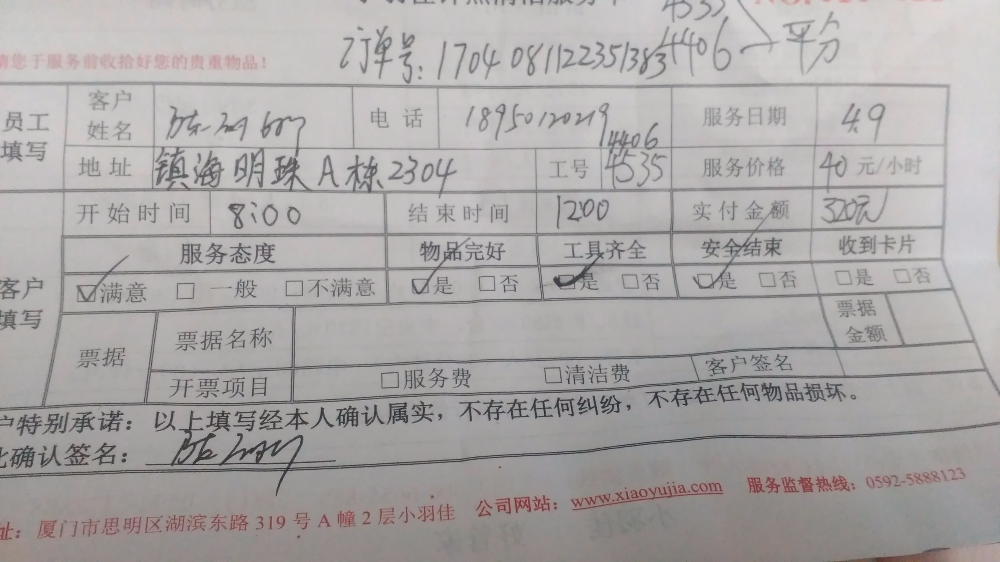 4535
订单号：17040811223513834406 平分
请您于服务前收拾好您的贵重物品！
员工填写 客户姓名 电话 18950120219 服务日期 4.9
4406
地址 镇海明珠A栋2304 工号 4535 服务价格 40元/小时
开始时间 8:00 结束时间 12:00 实付金额 320元
客户填写 服务态度 物品完好 工具齐全 安全结束 收到卡片
☑满意 □一般 □不满意 ☑是 □否 ☑是 □否 ☑是 □否 □是 □否
票据 票据名称 票据金额
开票项目 □服务费 □清洁费 客户签名
户特别承诺：以上填写经本人确认属实，不存在任何纠纷，不存在任何物品损坏。
此确认签名：
址：厦门市思明区湖滨东路319号A幢2层小羽佳 公司网站：www.xiaoyujia.com 服务监督热线：0592-5888123